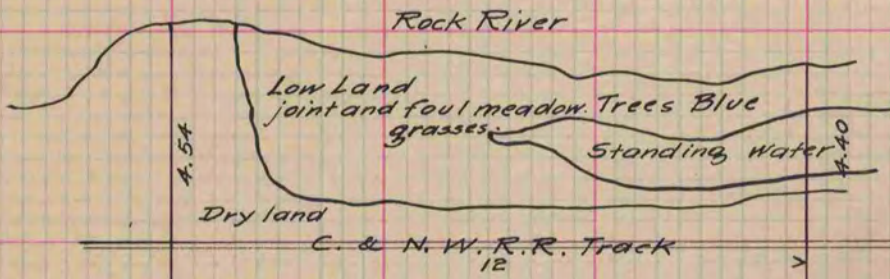 Rock River
Low Land
joint and foul meadow. Trees Blue
grasses.
Standing water
4.54
4.40
Dry land
C. & N. W. R.R. Track
12